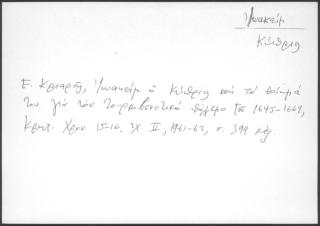 Ἰωακείμ
Κύπριος
Ε. Κριαρᾶς, Ἰωακεὶμ ὁ Κύπριος καὶ τὸ ποίημά
του γιὰ τὸν τουρκοβενετικὸ πόλεμο τοῦ 1645-1669,
Κρητ. Χρον. 15-16, τχ. ΙΙ, 1961-62, σ. 399 κἑξ